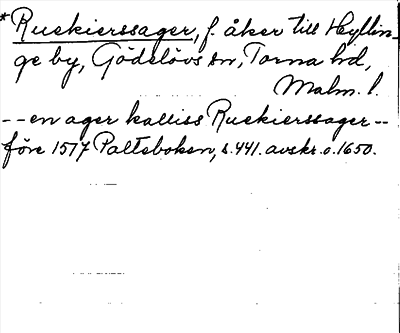 *Ruskierssager, f. åker till Hyllin-
ge by, Gödelövs sn, Torna hd,
Malm. l.
--en ager kalliss Ruskierssager--
före 1517 Paltebokен, s. 441. avskr. o. 1650.